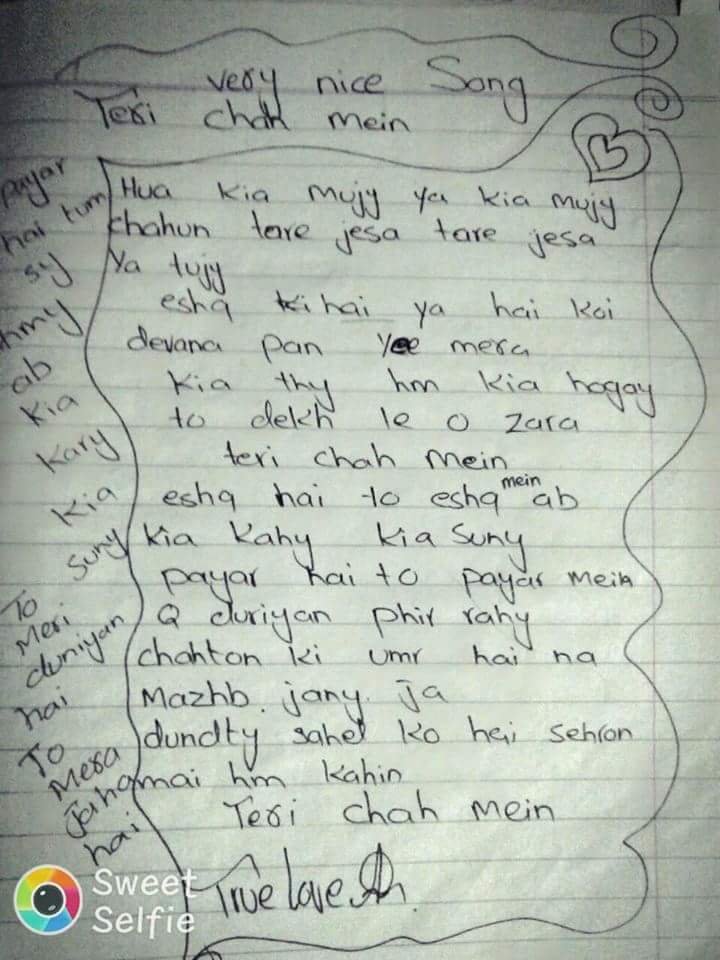 very nice Song
Teri chah mein
Hua kia mujy ya kia mujy
chahun tere jesa tare jesa
Ya tujy
eshq ki hai ya hai koi
devana pan Yee mera
kia thy hm kia hogay
to dekh le o zara
teri chah mein
eshq hai to eshq mein ab
kia kahy kia suny
payar hai to payar mein
Q duriyan phir rahy
chahton ki umr hai na
Mazhb. jany. ja
dundty sahel ko hai sehron
mai hm kahin
Teri chah mein
True love
payar
hai tum
sy
hmy
ab
kia
kary
kia
suny
To
Meri
duniyan
hai
To
Mera
jaha
hai
Sweet
Selfie